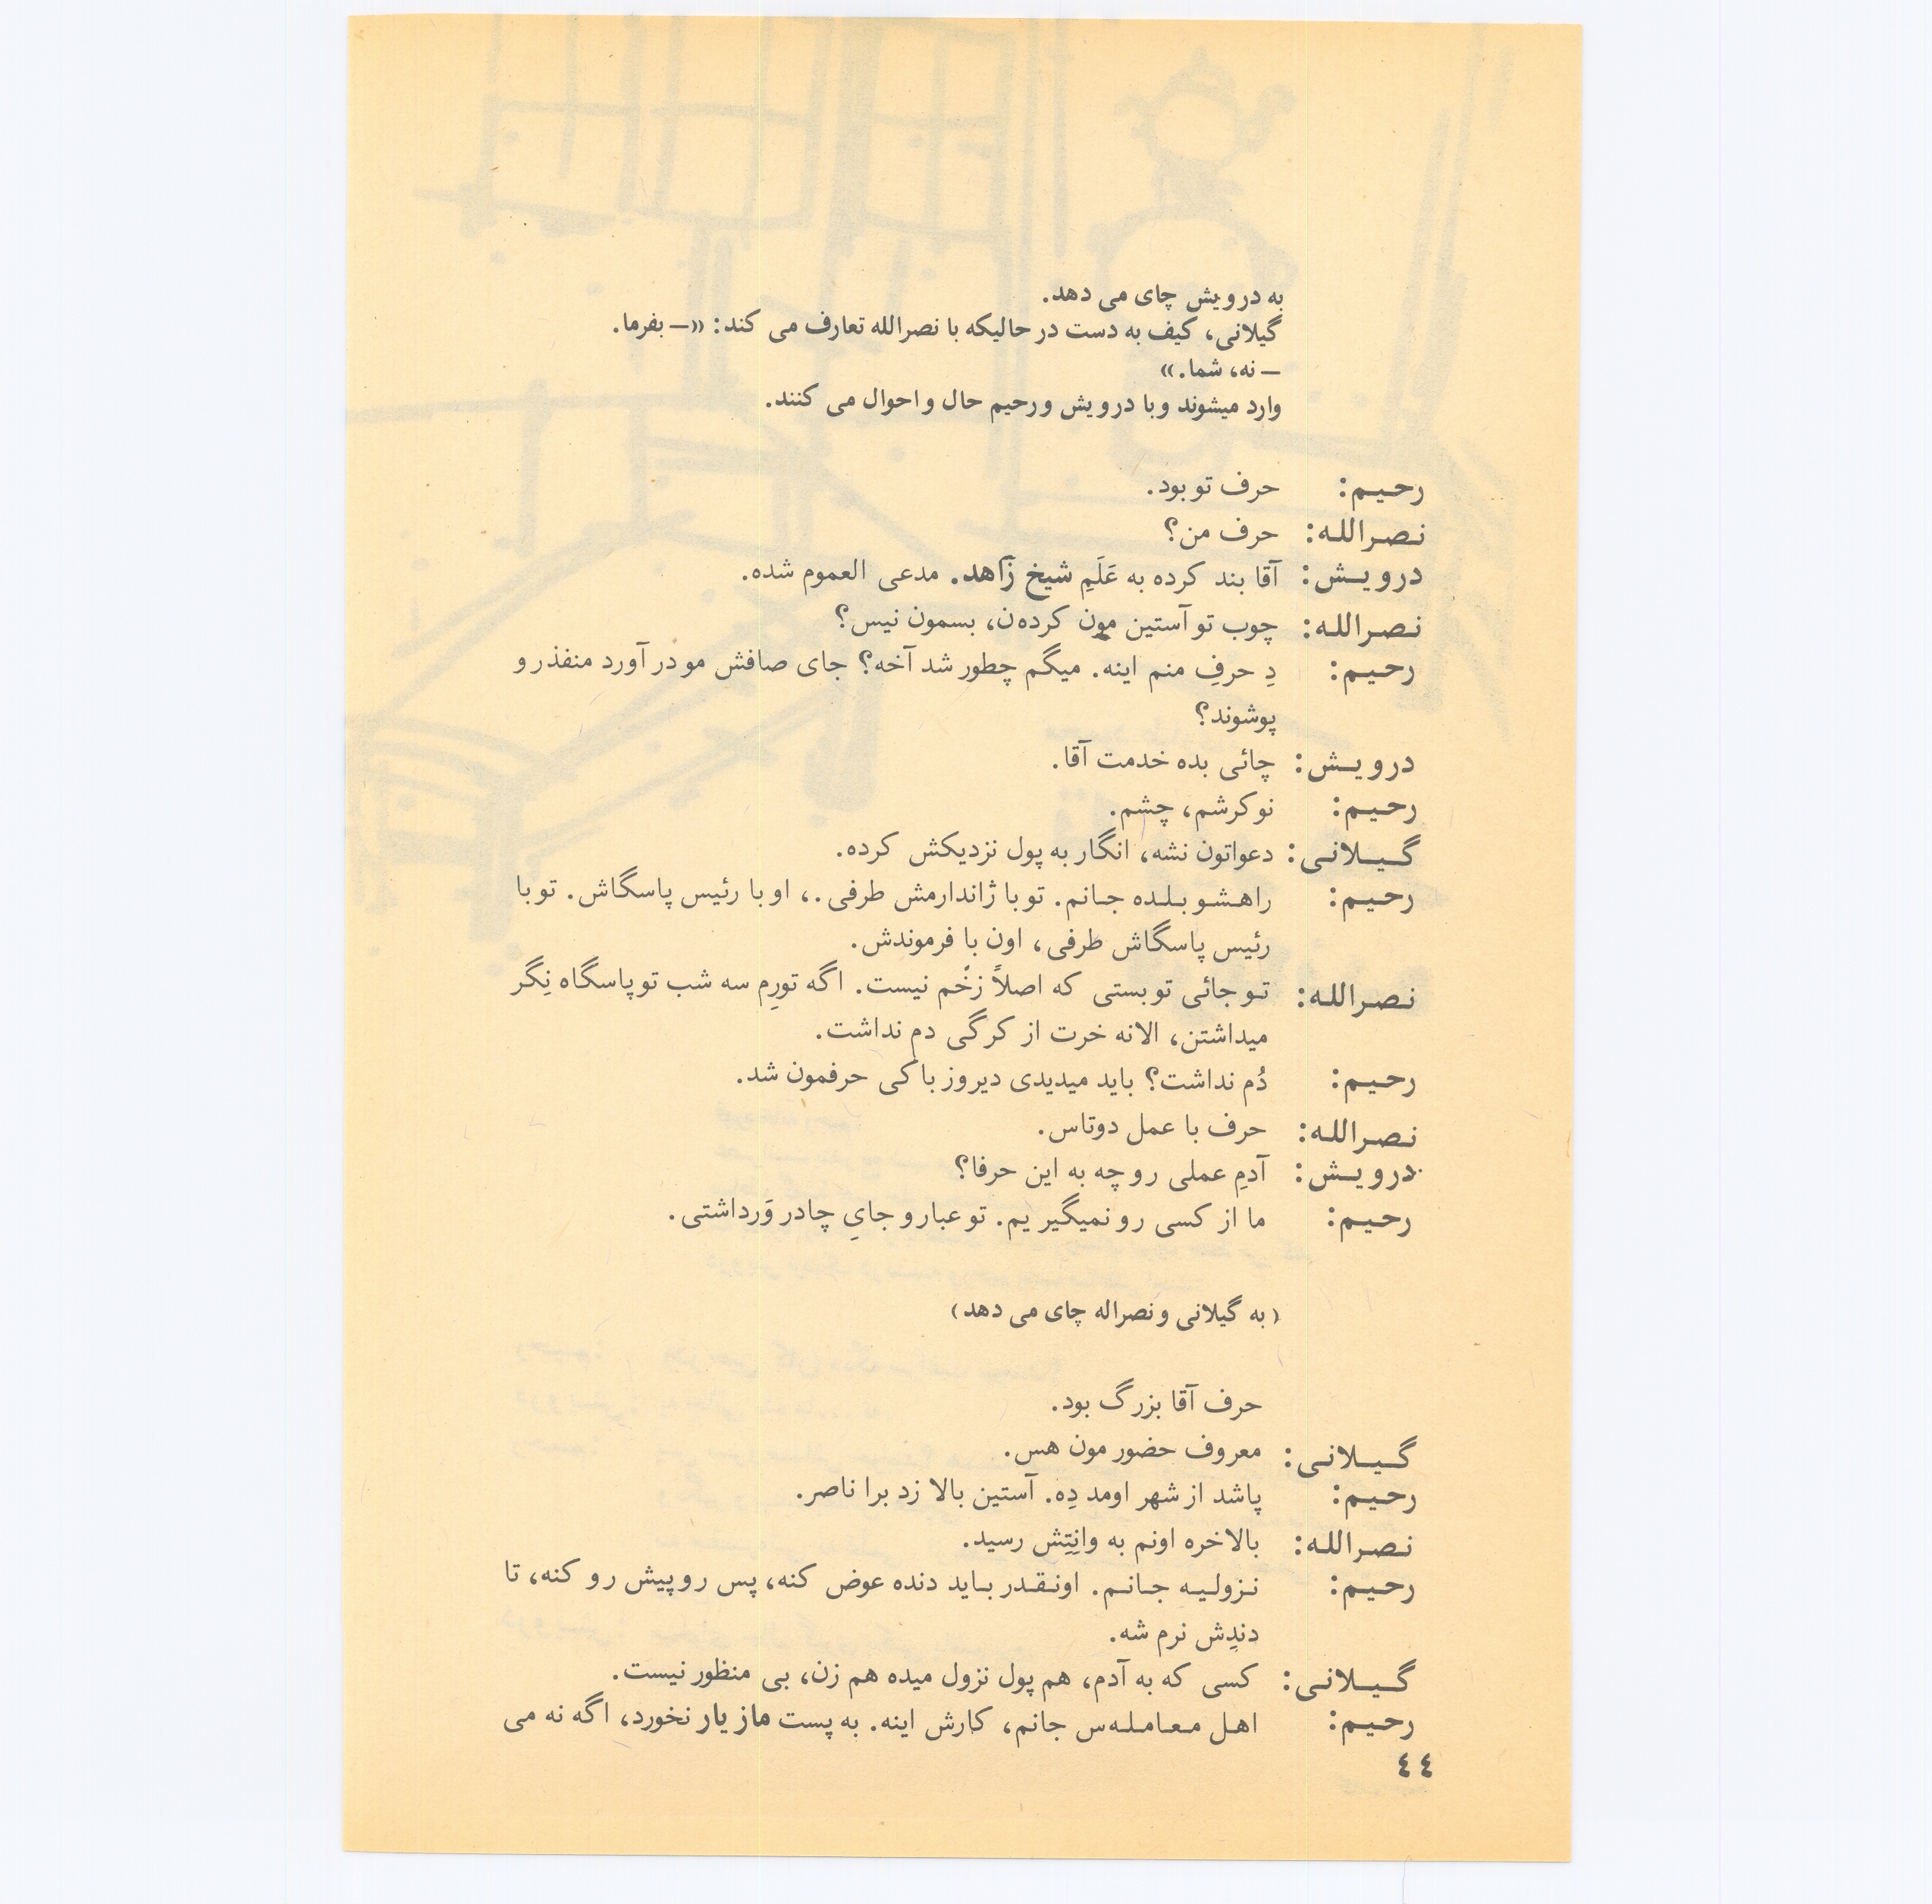 به درویش چای می دهد.
گیلانی، کیف به دست در حالیکه با نصرالله تعارف می کند: «— بفرما.
— نه، شما.»
وارد میشوند و با درویش و رحیم حال و احوال می کنند.
رحیم: حرف تو بود.
نصرالله: حرف من؟
درویش: آقا بند کرده به عَلَمِ شیخ زاهد. مدعی العموم شده.
نصرالله: چوب تو آستین مون کرده‌ن، بسمون نیس؟
رحیم: دِ حرفِ منم اینه. میگم چطور شد آخه؟ جای صافش مو در آورد منفذ رو
پوشوند؟
درویش: چائی بده خدمت آقا.
رحیم: نوکرشم، چشم.
گیلانی: دعواتون نشه، انگار به پول نزدیکش کرده.
رحیم: راهشو بلده جانم. تو با ژاندارمش طرفی.، او با رئیس پاسگاش. تو با
رئیس پاسگاش طرفی، اون با فرموندش.
نصرالله: تو جائی تو بستی که اصلاً زخْم نیست. اگه تورِم سه شب تو پاسگاه نِگر
میداشتن، الانه خرت از کرگی دم نداشت.
رحیم: دُم نداشت؟ باید میدیدی دیروز با کی حرفمون شد.
نصرالله: حرف با عمل دوتاس.
درویش: آدمِ عملی رو چه به این حرفا؟
رحیم: ما از کسی رو نمیگیریم. تو عبارو جایِ چادر وَرداشتی.
(به گیلانی و نصراله چای می دهد)
حرف آقا بزرگ بود.
گیلانی: معروف حضور مون هس.
رحیم: پاشد از شهر اومد دِه. آستین بالا زد برا ناصر.
نصرالله: بالاخره اونم به وانِتِش رسید.
رحیم: نزولیه جانم. اونقدر باید دنده عوض کنه، پس رو پیش رو کنه، تا
دندِش نرم شه.
گیلانی: کسی که به آدم، هم پول نزول میده هم زن، بی منظور نیست.
رحیم: اهل معامله‌س جانم، کارش اینه. به پست مازیار نخورد، اگه نه می
٤٤